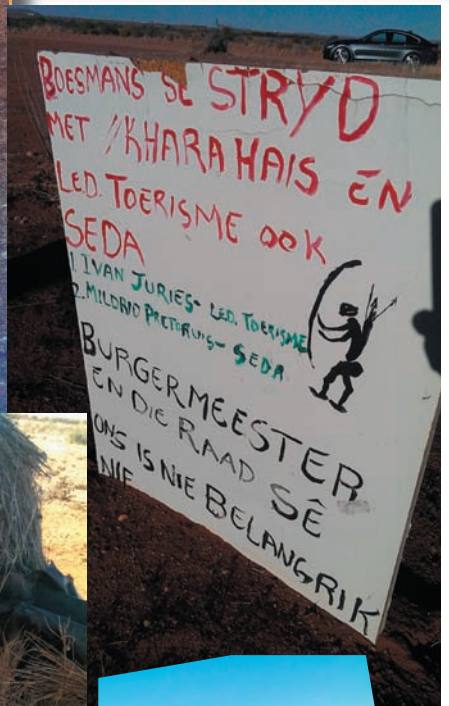 BOESMANS SE STRYD
MET //KHARA HAIS EN
LED. TOERISME OOK
SEDA
1. IVAN JURIES- LED. TOERISME
2. MILDRID PRETORUIS- SEDA
BURGERMEESTER
EN DIE RAAD SÊ
ONS IS NIE BELANGRIK
NIE